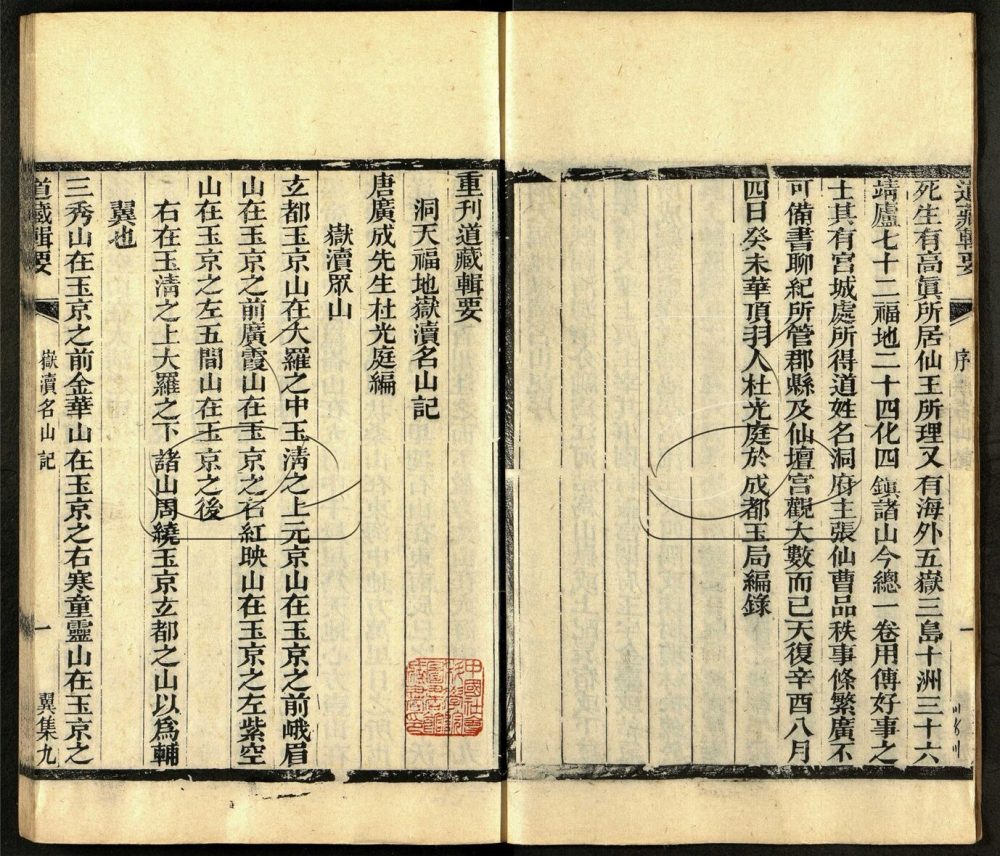 道藏輯要 序 一
死生有高眞所居仙王所理又有海外五嶽三島十洲三十六
靖廬七十二福地二十四化四鎮諸山今總一卷用傳好事之
士其有宮城處所得道姓名洞府主張仙曹品秩事條繁廣不
可備書聊紀所管郡縣及仙壇宮觀大數而已天復辛酉八月
四日癸未華頂羽人杜光庭於成都玉局編錄
重刊道藏輯要
洞天福地嶽瀆名山記
唐廣成先生杜光庭編
嶽瀆眾山
玄都玉京山在大羅之中玉淸之上元京山在玉京之前峨眉
山在玉京之前廣霞山在玉京之右紅映山在玉京之左紫空
山在玉京之左五間山在玉京之後
右在玉淸之上大羅之下諸山周繞玉京玄都之山以爲輔
翼也
三秀山在玉京之前金華山在玉京之右寒童靈山在玉京之
道藏輯要 嶽瀆名山記 一 翼集九